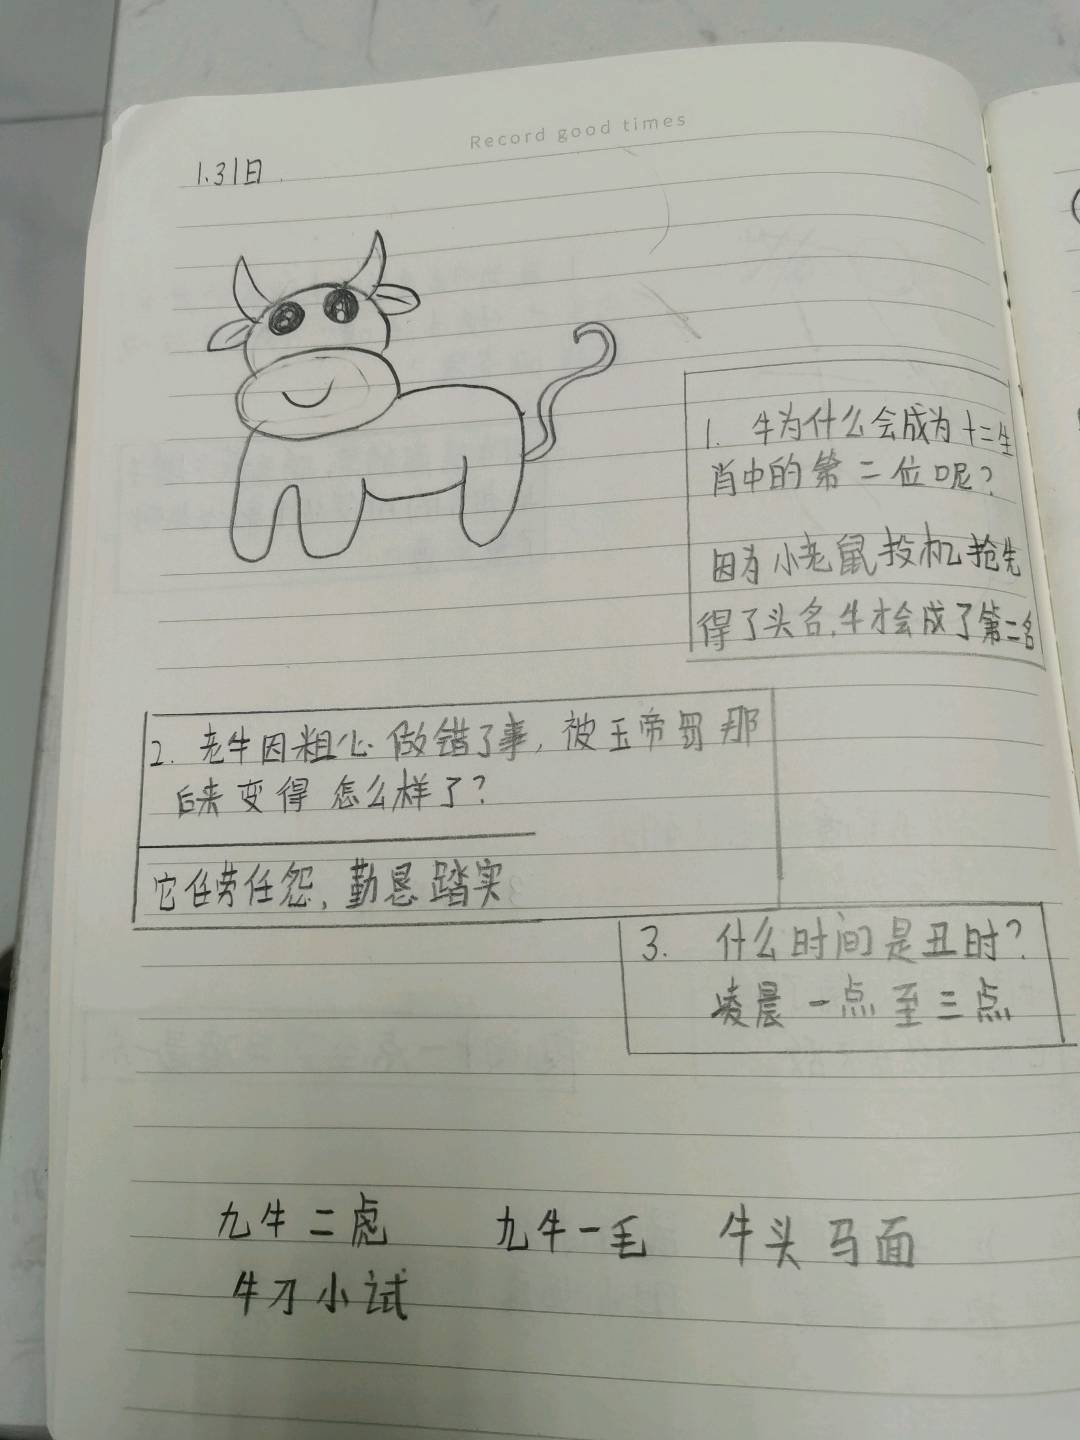 Record good times
1.31日
1. 牛为什么会成为十二生
肖中的第二位呢?
因为小老鼠投机抢先
得了头名,牛才会成了第二名
2. 老牛因粗心做错了事,被玉帝罚 那
后来变得怎么样了?
它任劳任怨,勤恳踏实
3. 什么时间是丑时?
凌晨一点至三点
九牛二虎 九牛一毛 牛头马面
牛刀小试